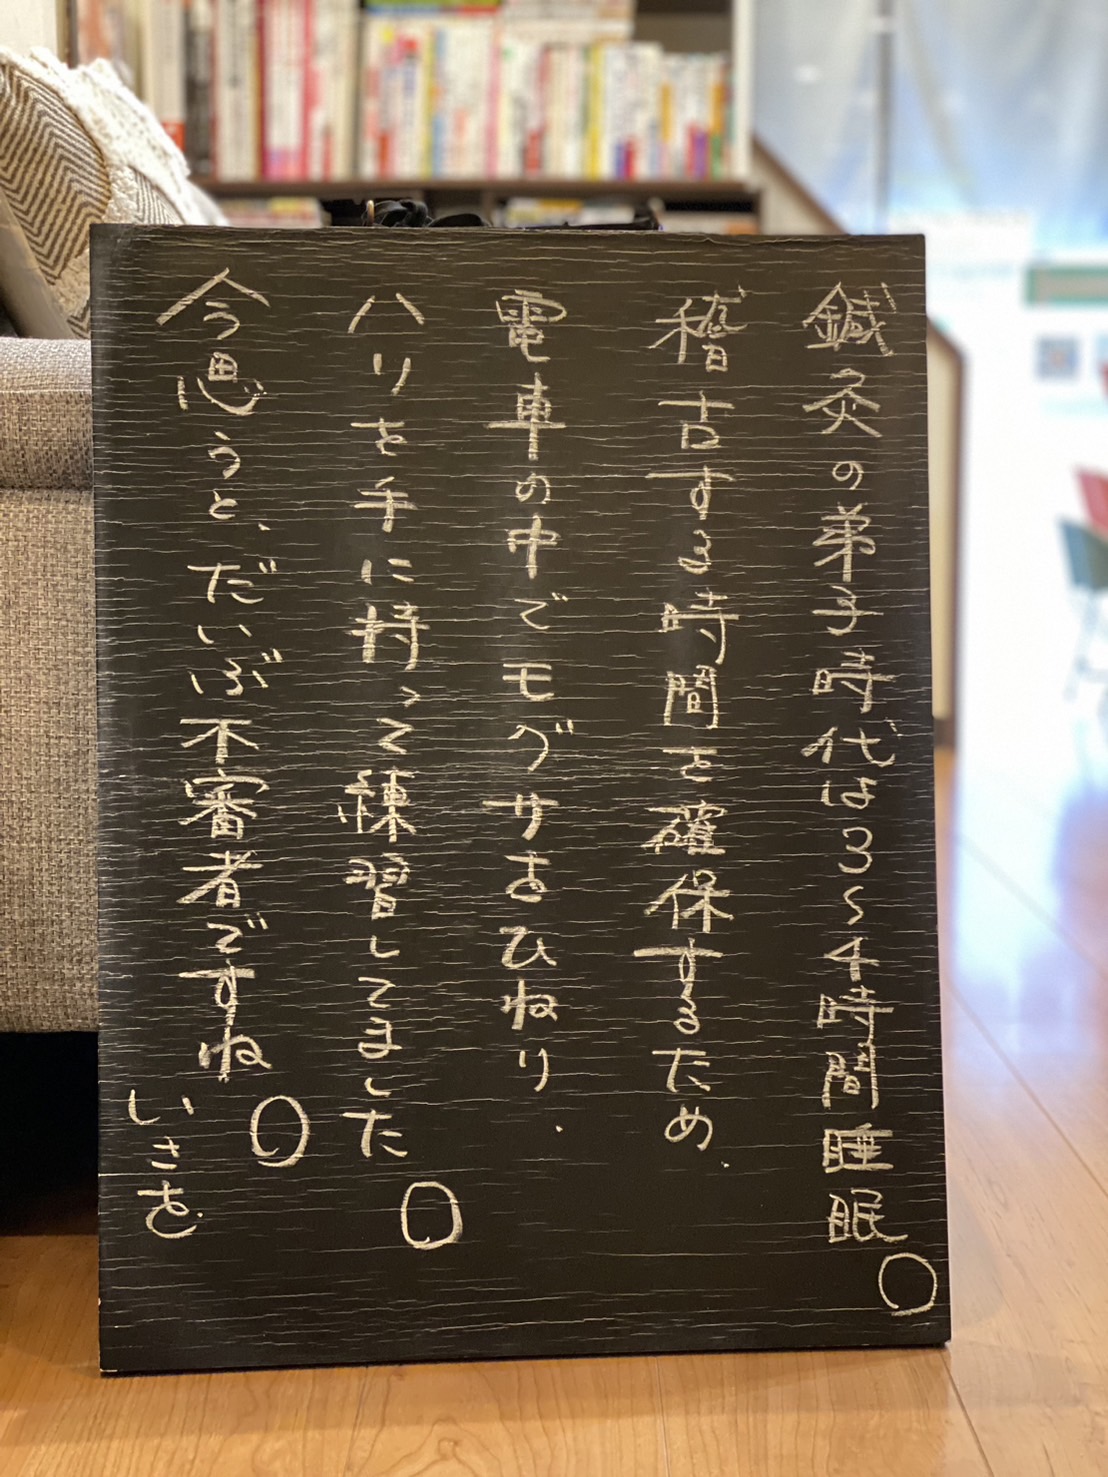 鍼灸の弟子時代は3〜4時間睡眠。
稽古する時間を確保するため、
電車の中でモグサをひねり、
ハリを手に持って練習してました。
今思うと、だいぶ不審者ですね。
いさを